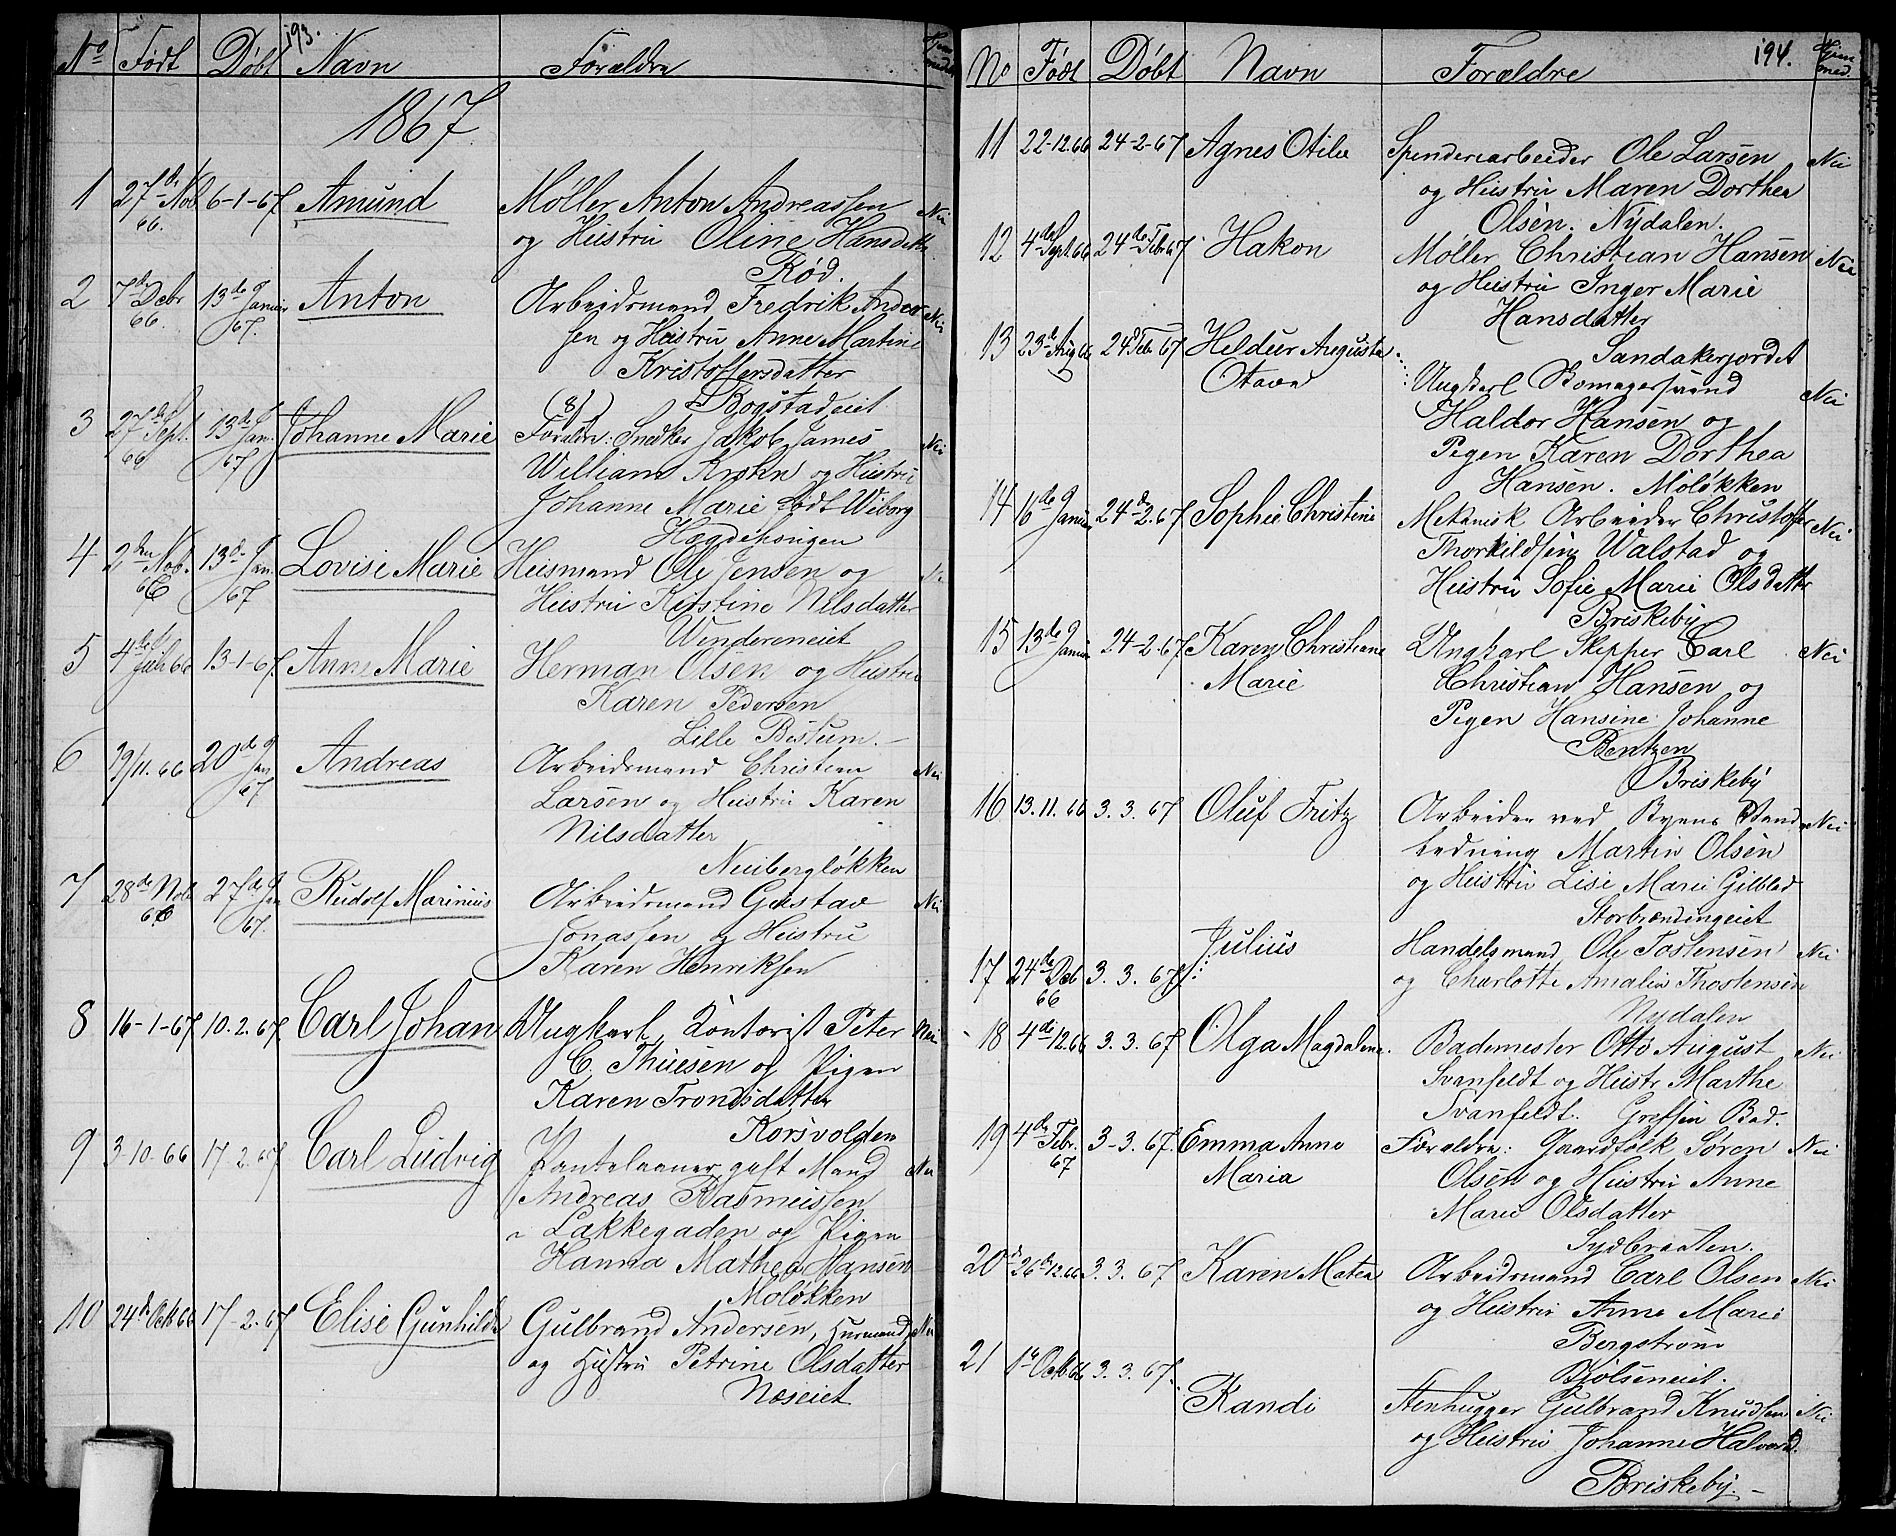 193.
No Født Døbt Navn Forældre
1867.
1 27de Nob 66. 6-1-67. Amund Møller Anton Andreassen Nei
og Hustru Oline Hansdatt.
Rød.
2 7de Debr 66. 13de Januar 67. Anton Arbeidsmand Fredrik Ander Nei
sen og Hustru Anne Martine
Kristoffersdatter
Bogstadeiet
3 27de Sept. 66 13de Jan. 67 Johanne Marie Forældre: Snedker Jakob James Nei
William Krohn og Hustru
Johanne Marie født Wiborg
Hægdehougen
4 2den Nob. 66 13de Jan. 67 Lovise Marie Huusmand Ole Jensen og
Hustru Kirstine Nilsdatter
Windereneiet
5 4de Juli 66 13-1-67. Anne Marie Herman Olsen og Hustru
Karen Pedersen
Lille Bislum.
6 19/11. 66 20de Jan 67 Andreas Arbeidsmand Christian Nei
Larsen og Hustru Karen
Nilsdatter
Nuibergløkken
7 28de Nob 66 27de Jan 67. Rudolf Marinius Arbeidsmand Gustav Nei
Jonassen og Hustru
Karen Henriksen
8 16-1-67 10.2.67. Carl Johan Ungkarl, Kontorist Peter Nei
C. Thuesen og Pigen
Karen Trondsdatter
Korsvolden
9 3-10-66 17-2-67 Carl Ludvig Pantelaaner gift Mand Nei
Andreas Rasmussen
Lakkegaden og Pigen
Hanna Mathea Hansen
Moløkken
10 24de Octb 66 17-2-67 Elise Gunhilde Gulbrand Andersen, Husmand, Nei
og Hustru Petrine Olsdatter
Næseiet
194.
No Født Døbt Navn Forældre
11 22-12.66 24-2-67 Agnes Otilie Spenderiarbeider Ole Larsen Nei
og Hustru Maren Dorthea
Olsen. Nydalen.
12 4de Sept. 66 24de Febr 67 Hakon Møller Christian Hansen Nei
og Hustru Inger Marie
Hansdatter
Sandakerjordet
13 23de Aug 66 24de Febr 67 Heldur Augusta Ungkarl Nei
Otava Haldor Hansen og
Pigen Karen Dorthea
Hansen. Moløkken
14 16de Januar 24de 2.67 Sophie Christine Mekanisk Arbeider Christoffer Nei
Thorkildsen Walstad og
Hustru Sofie Marie Olsdatter
Briskeby
15 13de Januar 24-2-67. Karen Christiane Ungkarl Skipper Carl Nei
Marie Christian Hansen og
Pigen Hansine Johanne
Bentzen
Briskeby
16 13.11.66 3.3.67 Oluf Fritz Arbeider ved Byens Vand Nei
ledning Martin Olsen
og Hustru Lise Marie Gilblad
17 24de Decb 66 3.3.67 Julius Handelsmand Ole Tostensen Nei
og Charlotte Amalia Thostensen
Nydalen
18 4de 12.66 3.3.67 Olga Magdalene. Bademester Otto August Nei
Svanfeldt og Hustr Marthe
Svanfeldt. Greffen Bad.
19 4de Febr. 67 3-3.67. Emma Anne Forældre: Gaardfolk Søren Nei
Maria Olsen og Hustru Anne
Marie Olsdatter
Sydbraaten.
20 26de 12.66 3.3.67 Karen Matea Arbeidsmand Carl Olsen Nei
og Hustru Anne Marie
Bergstrøm
Kjølseneiet.
21 1ste Octb 66 3.3.67. Randi Stenhugger Gulbrand Knudsen Nei
og Hustru Johanne Halvord.
Briskeby.